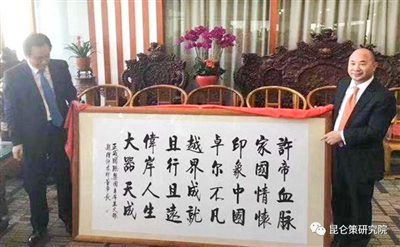 許帝血脉
家國情懷
印象中國
卓尔不凡
越界成就
且行且遠
偉岸人生
大器天成
昆仑策研究院